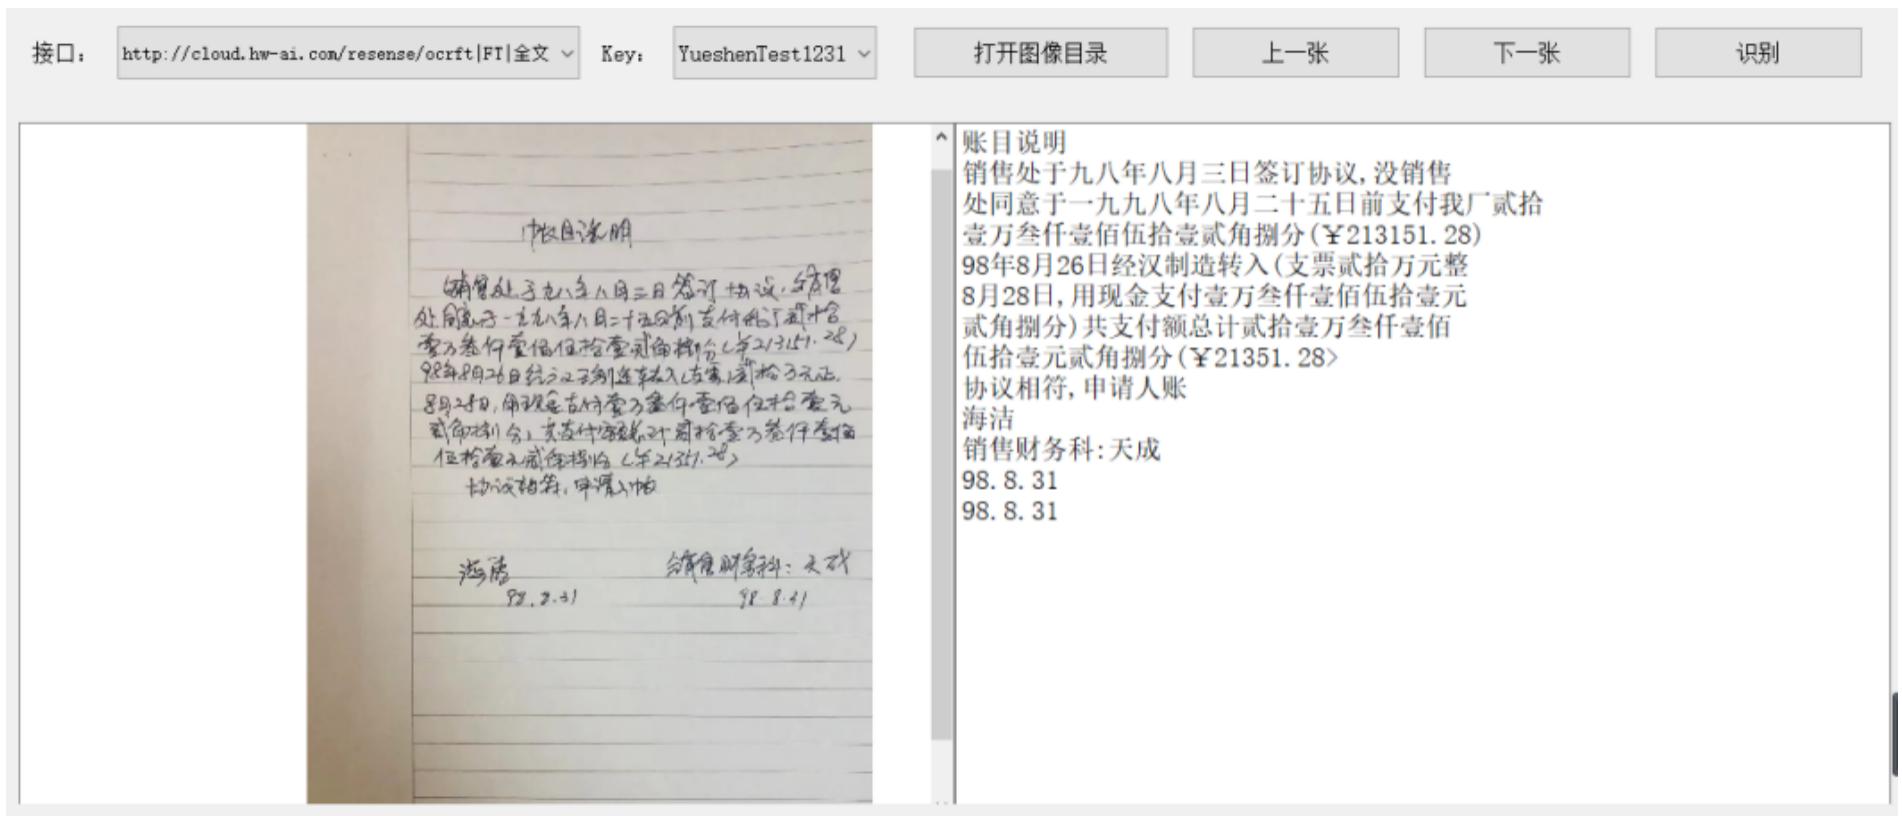 接口：
http://cloud.hw-ai.com/resense/ocrft|FT|全文
Key：
YueshenTest1231
打开图像目录
上一张
下一张
识别
帐目说明
销售处于九八年八月三日签订协议,销售
处同意于一九九八年八月二十五日前支付我厂贰拾
壹万叁仟壹佰伍拾壹贰角捌分(¥213151.28)
98年8月26日转入(支票)贰拾万元正.
8月28日,用现金支付壹万叁仟壹佰伍拾壹元
贰角捌分,共支付总计贰拾壹万叁仟壹佰
伍拾壹元贰角捌分(¥21351.28)
协议相符,申请入帐
海洁
销售财务科:天成
98.8.31
98.8.31
账目说明
销售处于九八年八月三日签订协议,没销售
处同意于一九九八年八月二十五日前支付我厂贰拾
壹万叁仟壹佰伍拾壹贰角捌分(¥213151.28)
98年8月26日经汉制造转入(支票贰拾万元整
8月28日,用现金支付壹万叁仟壹佰伍拾壹元
贰角捌分)共支付额总计贰拾壹万叁仟壹佰
伍拾壹元贰角捌分(¥21351.28>
协议相符,申请人账
海洁
销售财务科:天成
98.8.31
98.8.31